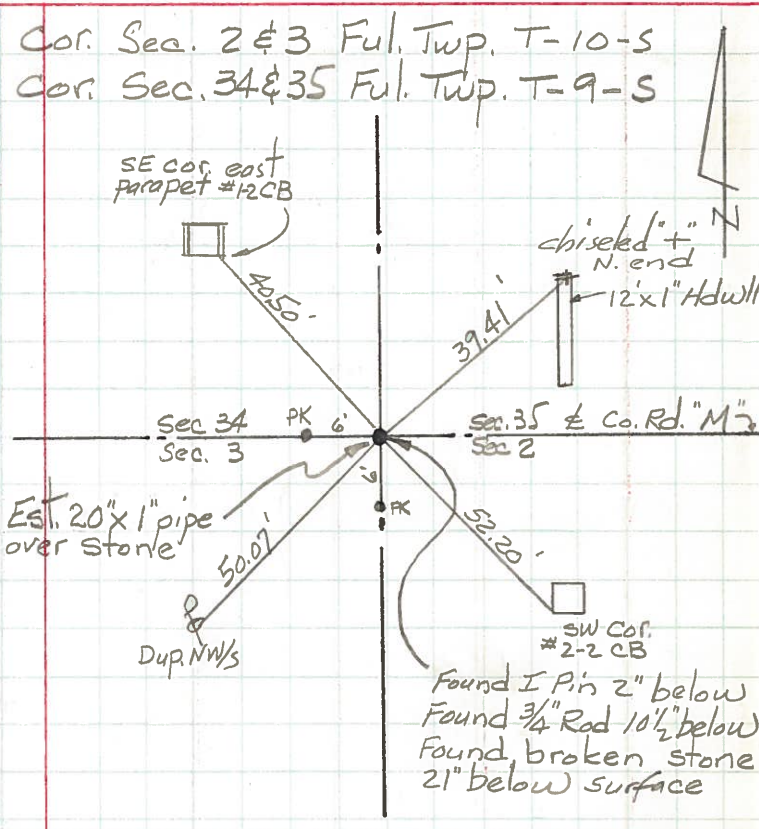 Cor. Sec. 2 & 3 Ful. Twp. T-10-S
Cor. Sec. 34 & 35 Ful. Twp. T-9-S
SE cor. east
parapet #1-2 CB
N
chiseled "+"
N. end
12'x1" Hdwll
40.50'
39.41'
Sec. 34
PK
6'
Sec. 35 & Co. Rd. "M"
Sec. 3
Sec 2
6'
PK
Est. 20"x1" pipe
over stone
50.07'
52.20'
Dup. NW/s
SW Cor.
#2-2 CB
Found I Pin 2" below
Found 3/4" Rod 10 1/2" below
Found broken stone
21" below surface